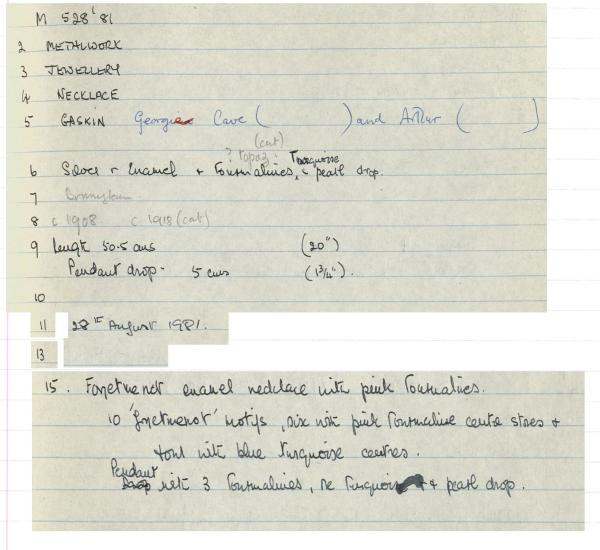 M 528'81
2 METALWORK
3 JEWELLERY
4 NECKLACE
5 GASKIN Georgie Cave ( ) and Arthur ( )
(cat)
? topaz : Turquoise
6 Silver & Enamel + Tourmalines, & pearl drop.
7 Birmingham
8 c 1908 c 1918 (cat)
9 Length 50.5 cms (20")
Pendant drop - 5 cms (1 3/4").
10
11 28TH August 1981.
13
15. Forgetmenot enamel necklace with pink Tourmalines.
10 'forgetmenot' motifs, six with pink Tourmaline centre stones +
four with blue turquoise centres.
Pendant
with 3 Tourmalines, one Turquoise + pearl drop.